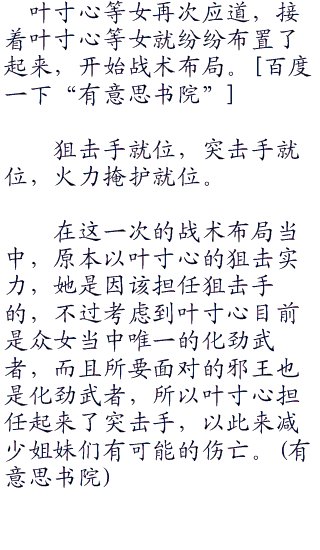 叶寸心等女再次应道，接
着叶寸心等女就纷纷布置了
起来，开始战术布局。[百度
一下“有意思书院”]
狙击手就位，突击手就
位，火力掩护就位。
在这一次的战术布局当
中，原本以叶寸心的狙击实
力，她是因该担任狙击手
的，不过考虑到叶寸心目前
是众女当中唯一的化劲武
者，而且所要面对的邪王也
是化劲武者，所以叶寸心担
任起来了突击手，以此来减
少姐妹们有可能的伤亡。(有
意思书院)